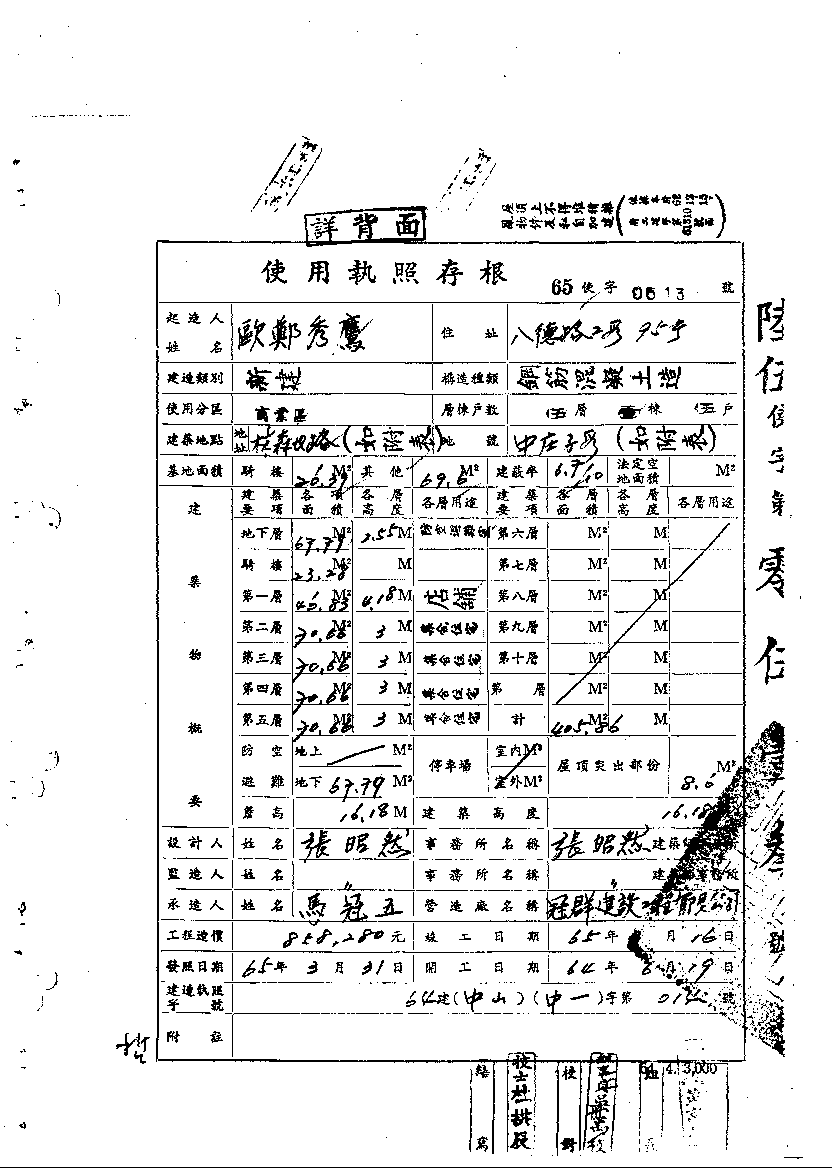 屋頂上不得堆積雜
物件及私自加建
詳背面
使用執照存根
65 使字 0613 號
起造人姓名 歐鄭秀鷹 住址 八德路2段95号
建造類別 新建 構造種類 鋼筋混凝土造
使用分區 商業區 層棟戶數 伍層 壹棟 伍戶
建築地點 地址 林森北路(如附表) 地號 中庄子段(如附表)
基地面積 騎樓 20.39 M² 其他 69.6 M² 建蔽率 6.7/10 法定空地面積 M²
建築物概要
建築要項 各項面積 各層高度 各層用途 建築要項 各層面積 各層高度 各層用途
地下層 67.79 M² 2.55 M 第六層 M² M
騎樓 23.28 M² M 第七層 M² M
第一層 40.83 M² 4.18 M 店舖 第八層 M² M
第二層 70.66 M² 3 M 集合住宅 第九層 M² M
第三層 70.66 M² 3 M 集合住宅 第十層 M² M
第四層 70.66 M² 3 M 集合住宅 第 層 M² M
第五層 70.66 M² 3 M 集合住宅 計 405.86 M²
防空避難 地上 M² 停車場 室內M² 屋頂突出部份 M²
地下 67.79 M² 室外M² 8.6
簷高 16.18 M 建築高度 16.18
設計人 姓名 張昭然 事務所名稱 張昭然建築
監造人 姓名 〃 事務所名稱 〃 建
承造人 姓名 馬冠五 營造廠名稱 冠群建設工程有限公司
工程造價 858,280 元 竣工日期 65年 月16日
發照日期 65年3月31日 開工日期 64年6月19日
建造執照字號 64建(中山)(中一)字第 號
附註
陸伍使字第零伍
繕寫
校對
4. 3,000